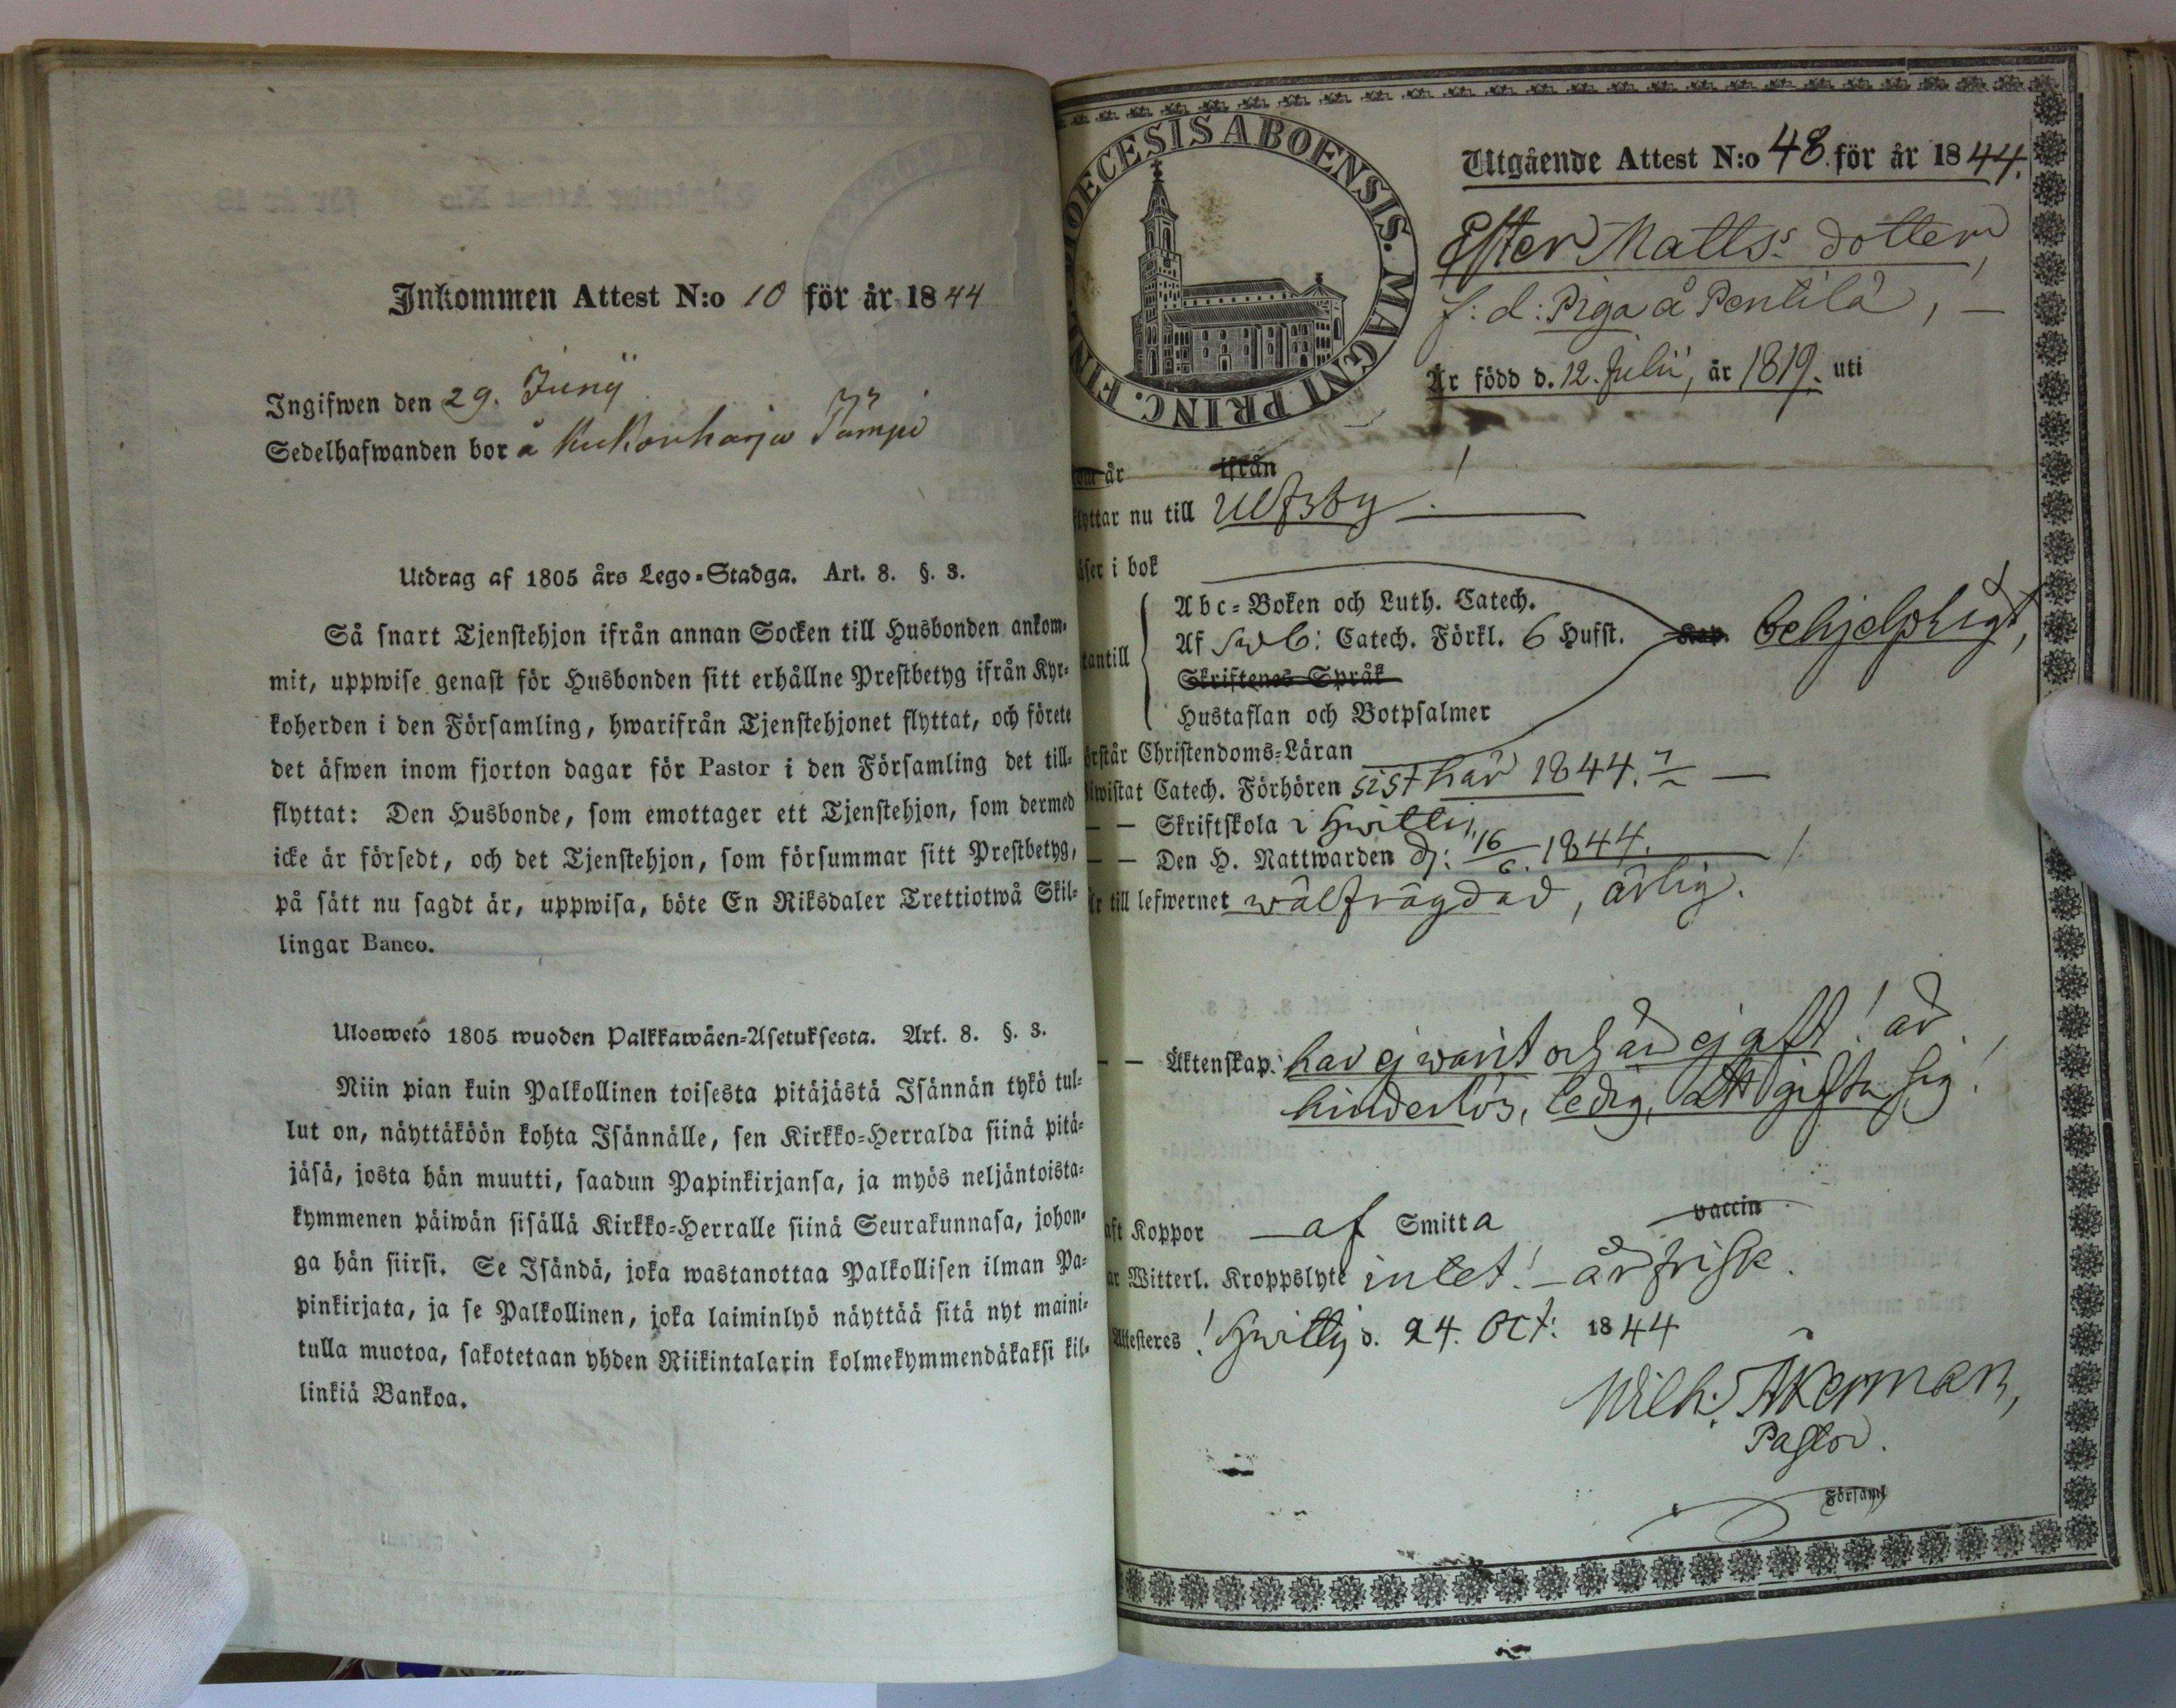 Inkommen Attest N:o 10 för år 1844
Ingifwen den 29. Junÿ
Sedelhafwanden bor å Kukonharja Jämpi
Utdrag af 1805 års Lego-Stadga. Art. 8. §. 3.
Så snart Tjenstehjon ifrån annan Socken till Husbonden ankom-
mit, uppwise genast för Husbonden sitt erhållne Prestbetyg ifrån Kyr-
koherden i den Församling, hwarifrån Tjenstehjonet flyttat, och förete
det äfwen inom fjorton dagar för Pastor i den Församling det till-
flyttat: Den Husbonde, som emottager ett Tjenstehjon, som dermed
icke är försedt, och det Tjenstehjon, som försummar sitt Prestbetyg,
på sätt nu sagdt är, uppwisa, böte En Riksdaler Trettiotwå Skil-
lingar Banco.
Ulosweto 1805 wuoden Palkkawäen-Asetuksesta. Art. 8. §. 3.
Niin pian kuin Palkollinen toisesta pitäjästä Isännän tykö tul-
lut on, näyttäköön kohta Isännälle, sen Kirkko-Herralda siinä pitä-
jäsä, josta hän muutti, saadun Papinkirjansa, ja myös neljäntoista-
kymmenen päiwän sisällä Kirkko-Herralle siinä Seurakunnasa, johon-
ga hän siirsi. Se Isändä, joka wastanottaa Palkollisen ilman Pa-
pinkirjata, ja se Palkollinen, joka laiminlyö näyttää sitä nyt maini-
tulla muotoa, sakotetaan yhden Riikintalarin kolmekymmendäkaksi kil-
linkiä Bankoa.
DIOECESIS ABOENSIS. MAGNI PRINC. FINL.
Utgående Attest N:o 48. för år 1844.
Ester Matts:s dotter,
f: d: Piga å Pentilä, —
Är född d. 12. Julii, år 1819. uti
om år ifrån
flyttar nu till Ulfsby. !
äser i bok
Abc-Boken och Luth. Catech.
tantill Af Sweb: Catech. Förkl. 6 Hufst. Kap. behjelpligt,
Skriftenes Språk
Hustaflan och Botpsalmer
örstår Christendoms-Läran
iwistat Catech. Förhören sist här 1844. —
— — Skriftskola i Hwittis,
— — Den H. Nattwarden d: 16/6. 1844.
är till lefwernet wälfrägdad, ärlig.
— — Äktenskap: har ej warit och är ej gift! är
hinderlös, ledig, att gifta sig!
aft Koppor — af Smitta vaccin
ar Witterl. Kroppslyte intet! — är frisk.
Attesteres ! Hwittis d. 24. Oct: 1844
Wilh: Åkerman,
Pastor.
Församl